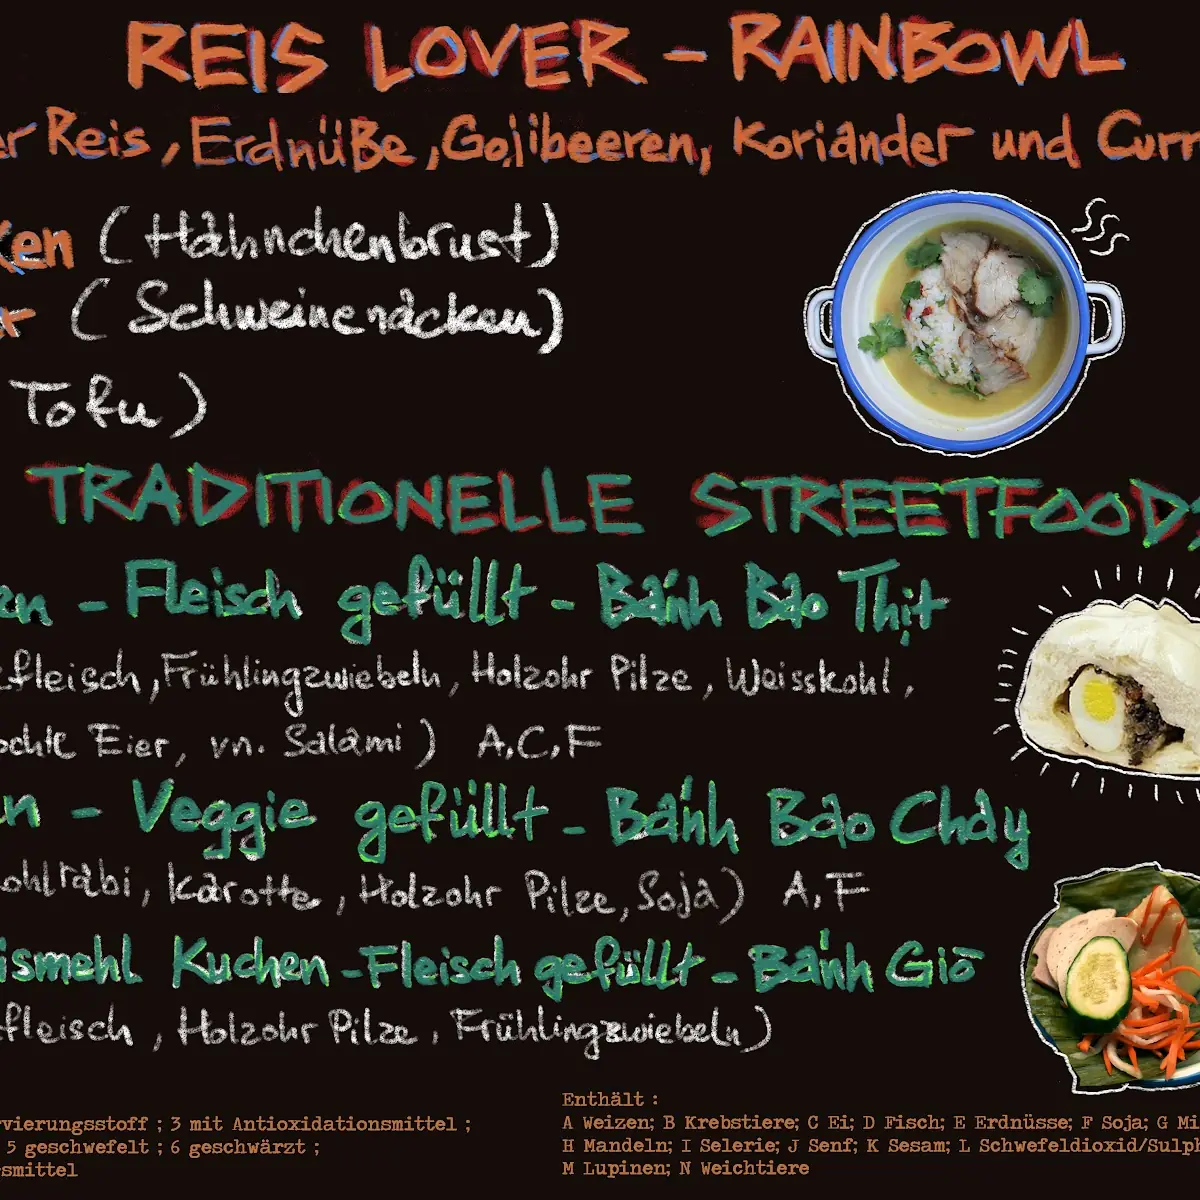 REIS LOVER - RAINBOWL
er Reis, Erdnüße, Gojibeeren, Koriander und Curr
ken (Hähnchenbrust)
er (Schweinenacken)
Tofu)
TRADITIONELLE STREETFOOD
en - Fleisch gefüllt - Bánh Bao Thịt
fleisch, Frühlingzwiebeln, Holzohr Pilze, Weisskohl,
ochte Eier, vn. Salami) A,C,F
en - Veggie gefüllt - Bánh Bao Chay
ohlrabi, Karotte, Holzohr Pilze, Soja) A,F
ismehl Kuchen - Fleisch gefüllt - Bánh Giò
fleisch, Holzohr Pilze, Frühlingzwiebeln)
rvierungsstoff ; 3 mit Antioxidationsmittel ;
5 geschwefelt ; 6 geschwärzt ;
smittel
Enthält :
A Weizen; B Krebstiere; C Ei; D Fisch; E Erdnüsse; F Soja; G Mi
H Mandeln; I Selerie; J Senf; K Sesam; L Schwefeldioxid/Sulph
M Lupinen; N Weichtiere